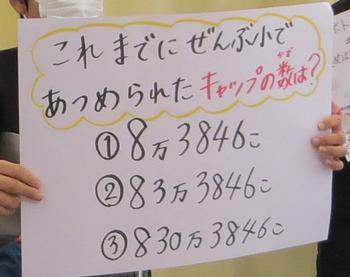 これまでにぜんぶ小で
あつめられたキャップの数は?
かず
①8万3846こ
②83万3846こ
③830万3846こ